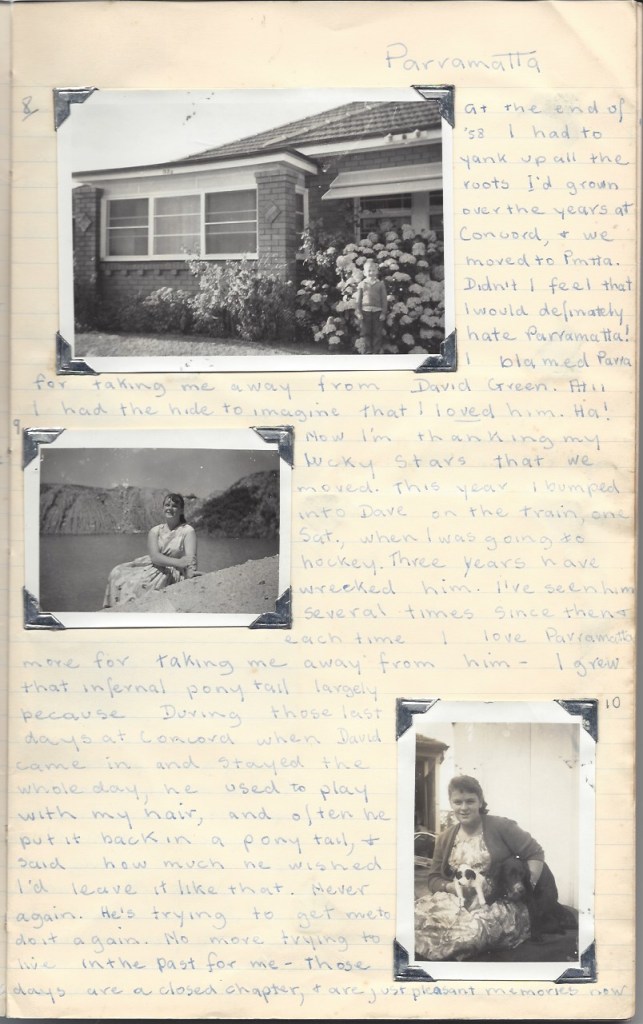 Parramatta
8
at the end of
'58 I had to
yank up all the
roots I'd grown
over the years at
Concord, & we
moved to Pmtta.
Didn't I feel that
I would definately
hate Parramatta!
I blamed Parra
for taking me away from David Green.
I had the hide to imagine that I loved him. Ha!
9
Now I'm thanking my
lucky stars that we
moved. This year I bumped
into Dave on the train, one
Sat., when I was going to
hockey. Three years have
wrecked him. I've seen him
several times since then &
each time I love Parramatta
more for taking me away from him - I grew
that infernal pony tail largely
because During those last
days at Concord when David
came in and stayed the
whole day, he used to play
with my hair, and often he
put it back in a pony tail, &
said how much he wished
I'd leave it like that. Never
again. He's trying to get me to
do it again. No more trying to
live in the past for me - Those
days are a closed chapter, & are just pleasant memories now
10